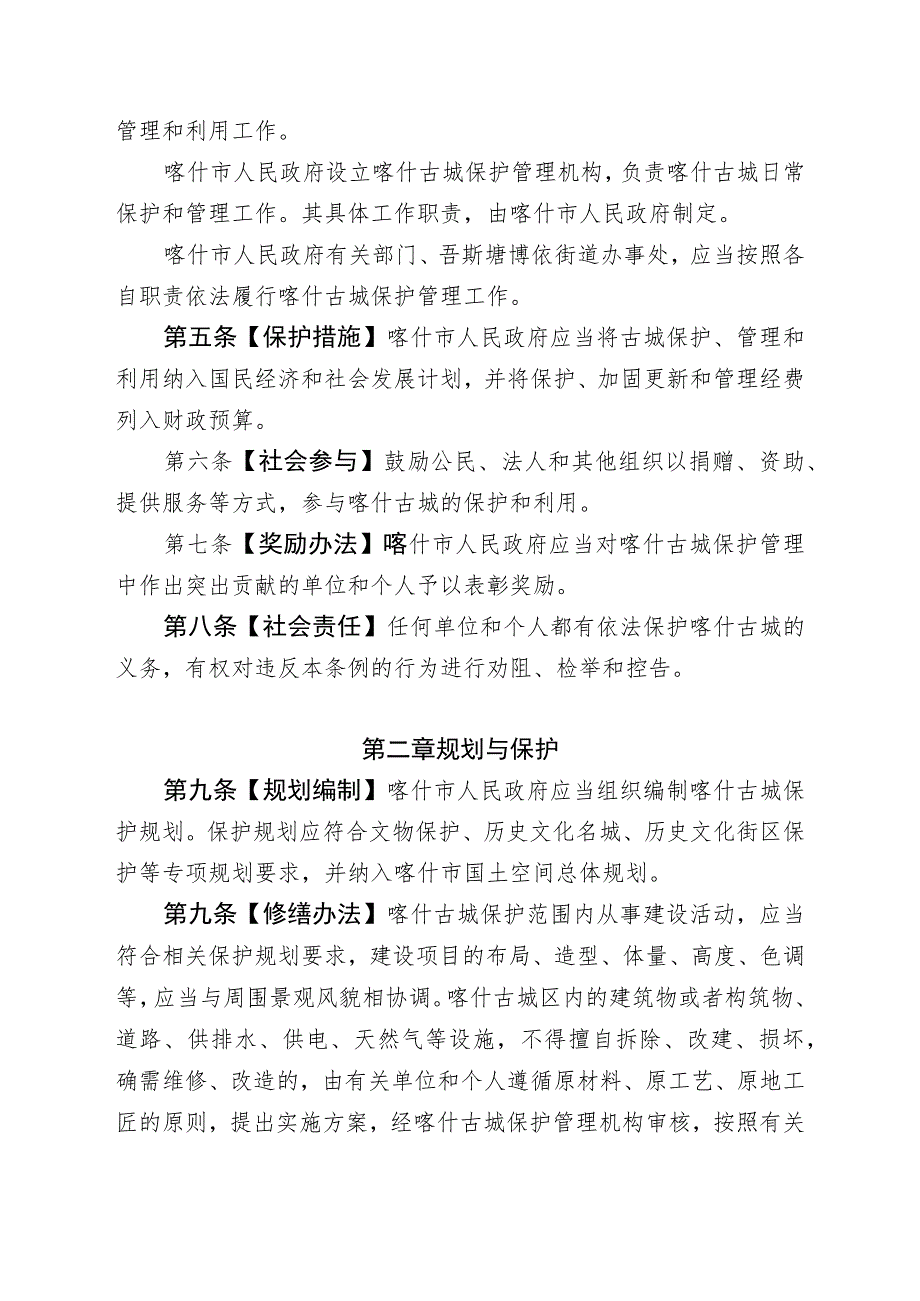 管理和利用工作。
喀什市人民政府设立喀什古城保护管理机构，负责喀什古城日常
保护和管理工作。其具体工作职责，由喀什市人民政府制定。
喀什市人民政府有关部门、吾斯塘博依街道办事处，应当按照各
自职责依法履行喀什古城保护管理工作。
第五条【保护措施】喀什市人民政府应当将古城保护、管理和
利用纳入国民经济和社会发展计划，并将保护、加固更新和管理经费
列入财政预算。
第六条【社会参与】鼓励公民、法人和其他组织以捐赠、资助、
提供服务等方式，参与喀什古城的保护和利用。
第七条【奖励办法】喀什市人民政府应当对喀什古城保护管理
中作出突出贡献的单位和个人予以表彰奖励。
第八条【社会责任】任何单位和个人都有依法保护喀什古城的
义务，有权对违反本条例的行为进行劝阻、检举和控告。
第二章规划与保护
第九条【规划编制】喀什市人民政府应当组织编制喀什古城保
护规划。保护规划应符合文物保护、历史文化名城、历史文化街区保
护等专项规划要求，并纳入喀什市国土空间总体规划。
第九条【修缮办法】喀什古城保护范围内从事建设活动，应当
符合相关保护规划要求，建设项目的布局、造型、体量、高度、色调
等，应当与周围景观风貌相协调。喀什古城区内的建筑物或者构筑物、
道路、供排水、供电、天然气等设施，不得擅自拆除、改建、损坏，
确需维修、改造的，由有关单位和个人遵循原材料、原工艺、原地工
匠的原则，提出实施方案，经喀什古城保护管理机构审核，按照有关